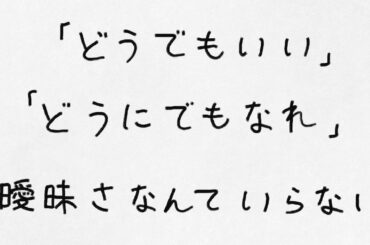 「どうでもいい」
「どうにでもなれ」
曖昧さなんていらない